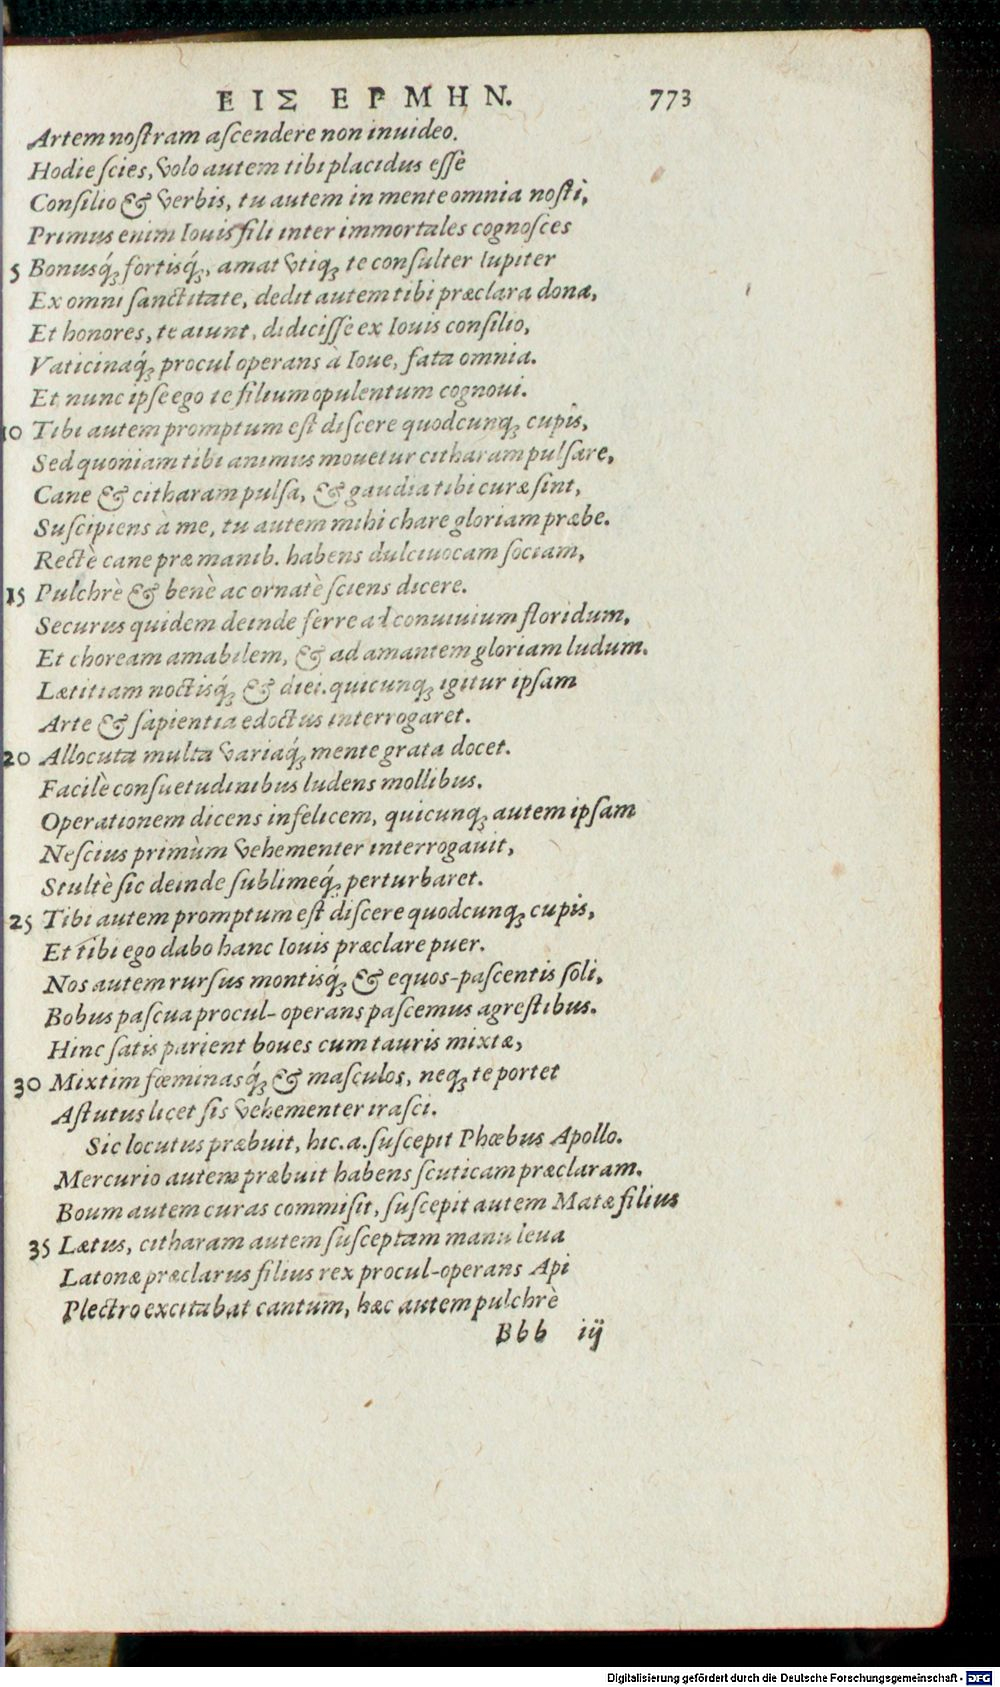 ΕΙΣ ΕΡΜΗΝ. 773
Artem nostram ascendere non inuideo.
Hodie scies, volo autem tibi placidus esse
Consilio & verbis, tu autem in mente omnia nosti,
Primus enim Iouis fili inter immortales cognosces
5 Bonusq́; fortisq́;, amat vtiq; te consulter Iupiter
Ex omni sanctitate, dedit autem tibi præclara dona,
Et honores, te aiunt, didicisse ex Iouis consilio,
Vaticinaq́; procul operans à Ioue, fata omnia.
Et nunc ipse ego te filium opulentum cognoui.
10 Tibi autem promptum est discere quodcunq; cupis,
Sed quoniam tibi animus mouetur citharam pulsare,
Cane & citharam pulsa, & gaudia tibi curæ sint,
Suscipiens à me, tu autem mihi chare gloriam præbe.
Rectè cane præ manib. habens dulciuocam sociam,
15 Pulchrè & benè ac ornatè sciens dicere.
Securus quidem deinde ferre ad conuiuium floridum,
Et choream amabilem, & ad amantem gloriam ludum.
Lætitiam noctisq́; & diei. quicunq; igitur ipsam
Arte & sapientia edoctus interrogaret.
20 Allocuta multa variaq́; mente grata docet.
Facilè consuetudinibus ludens mollibus.
Operationem dicens infelicem, quicunq; autem ipsam
Nescius primùm vehementer interrogauit,
Stultè sic deinde sublimeq́; perturbaret.
25 Tibi autem promptum est discere quodcunq; cupis,
Et tibi ego dabo hanc Iouis præclare puer.
Nos autem rursus montisq́; & equos-pascentis soli,
Bobus pascua procul-operans pascemus agrestibus.
Hinc satis parient boues cum tauris mixtæ,
30 Mixtim fœminasq́; & masculos, neq; te portet
Astutus licet sis vehementer irasci.
Sic locutus præbuit, hic.a. suscepit Phœbus Apollo.
Mercurio autem præbuit habens scuticam præclaram.
Boum autem curas commisit, suscepit autem Matæ filius
35 Lætus, citharam autem susceptam manu leua
Latonæ præclarus filius rex procul-operans Api
Plectro excitabat cantum, hæc autem pulchrè
Bbb iij
Digitalisierung gefördert durch die Deutsche Forschungsgemeinschaft - DFG